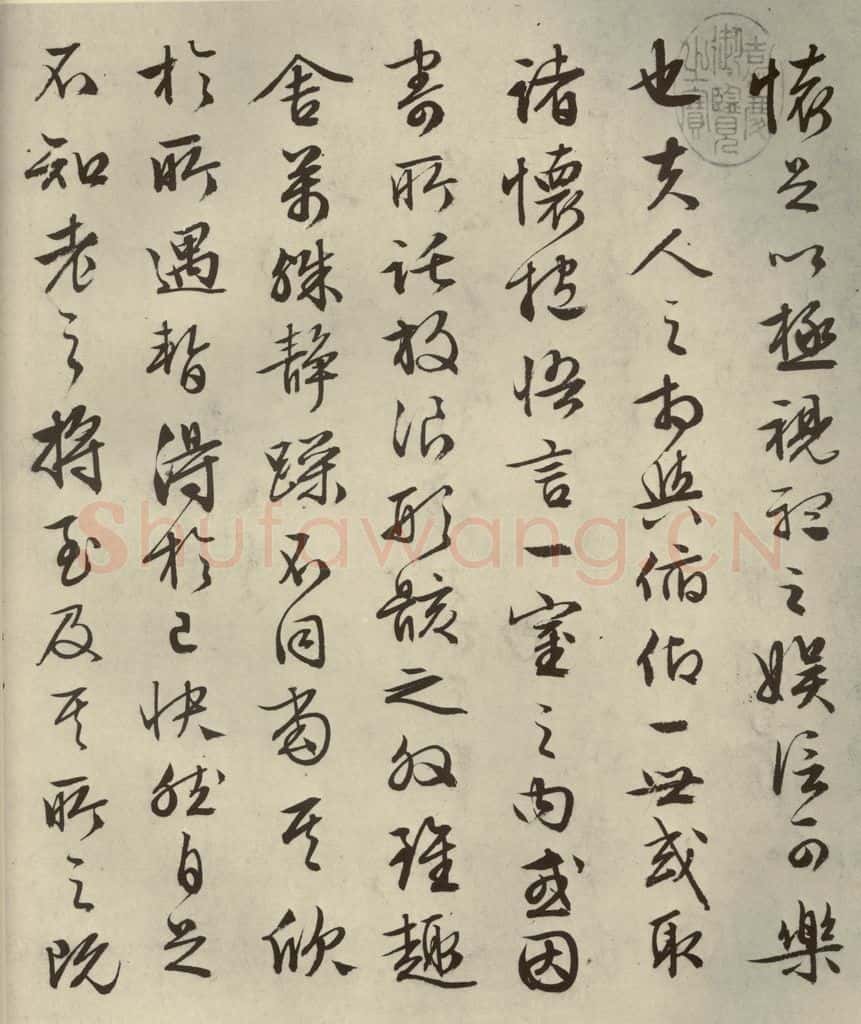 懷足以極視聽之娛信可樂
也夫人之相與俯仰一世或取
諸懷抱悟言一室之內或因
寄所託放浪形骸之外雖趣
舍萬殊靜躁不同當其欣
於所遇暫得於己快然自足
不知老之將至及其所之既
嘉慶御覽之寶
Shufawang.CN